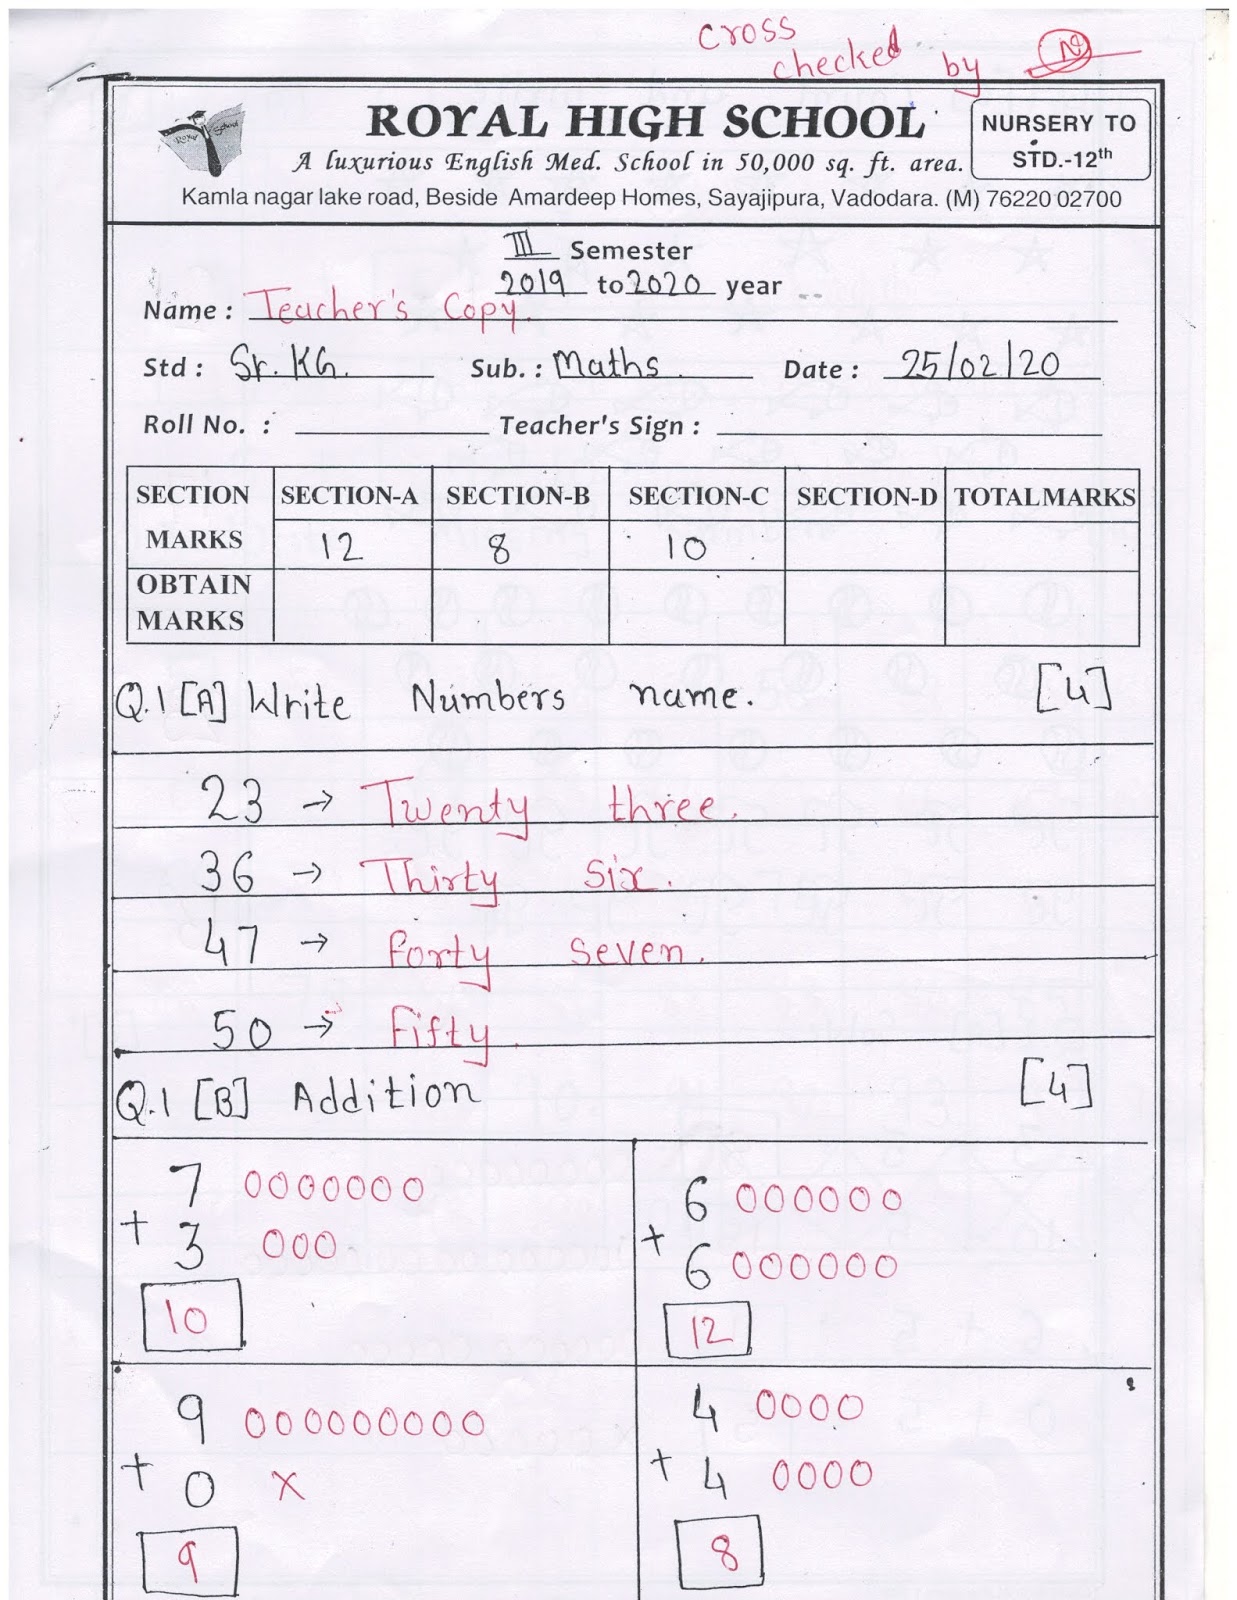 cross
checked by
Royal School
ROYAL HIGH SCHOOL
A luxurious English Med. School in 50,000 sq. ft. area.
NURSERY TO
STD.-12th
Kamla nagar lake road, Beside Amardeep Homes, Sayajipura, Vadodara. (M) 76220 02700
III Semester
2019 to 2020 year
Name : Teacher's Copy.
Std : Sr. KG. Sub. : Maths. Date : 25/02/20
Roll No. : Teacher's Sign :
SECTION SECTION-A SECTION-B SECTION-C SECTION-D TOTAL MARKS
MARKS 12 8 10
OBTAIN
MARKS
Q.1 [A] Write Numbers name. [4]
23 → Twenty three.
36 → Thirty six.
47 → forty seven.
50 → fifty.
Q.1 [B] Addition [4]
7 0000000
+
3 000
10
6 000000
+
6 000000
12
9 000000000
+
0 X
9
4 0000
+
4 0000
8